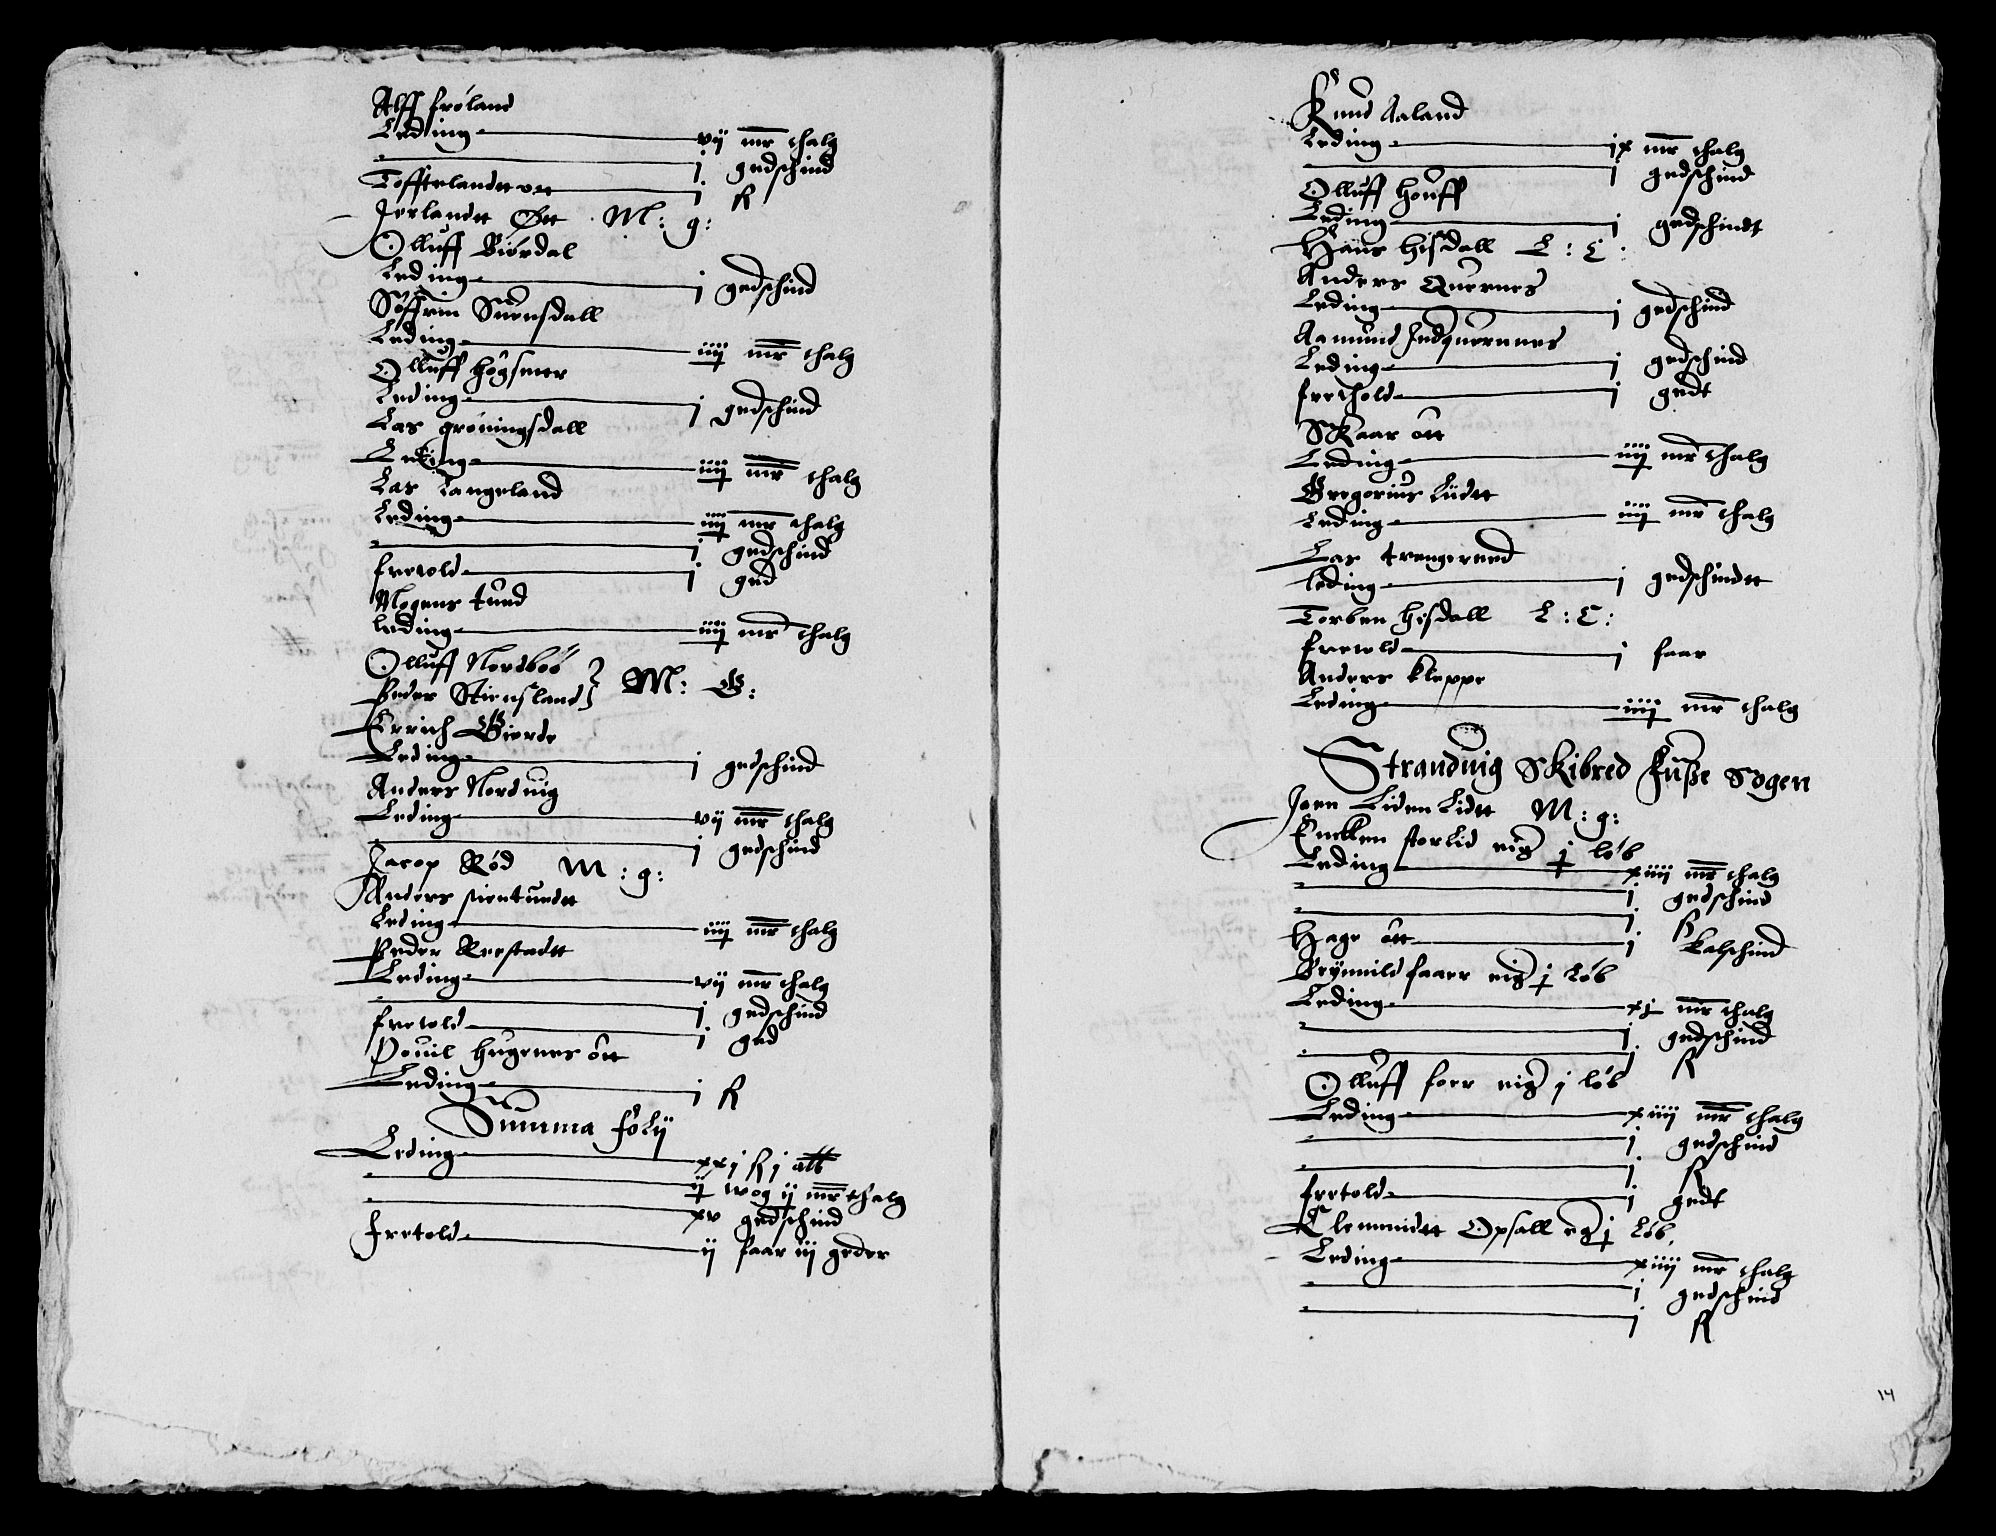 Alff frøland
Leding vij mr thalg
j gedschind
Tofftelandtt j
R
Jerlandtt Øtt M: g:
Olluff Biørdal
Leding j gedschind
Søffrin Suensdall
Leding iiij mr thalg
Olluff høgsetter
Leding j gedschind
Las grøningsdall
Leding iiij mr thalg
Las Langeland
Leding iiij mr thalg
j gedschind
fretold j ged
Mogens tued
leding iiij mr thalg
Olluff Nordbøö
Peder Stiensland } M: G:
Errich Gierde
Leding j gedschind
Anders Norduig
Leding vij mr thalg
j gedschind
Jacop Rød M: g:
Anders
Leding iiij mr thalg
Peder Reestadtt
Leding vij mr thalg
j gedschind
fretold j ged
Pouil hugenes ött
Leding j R
Summa folij
Leding xxj R j alb
ij wog ij mr thalg
xv gedschind
Fretold ij faar iij geder
Knud Aaland
Leding ix mr thalg
j gedschind
Olluff houff
Leding j gedschindt
Hans hisdall L: C:
Anders Quernes
Leding j gedschind
Aamund Indquernnes
Leding j gedschind
frethold j gedt
Skaar ött
Leding iiij mr thalg
Gregorius Lüdtt
Leding iiij mr thalg
Las trengereed
leding j gedschindtt
Torben hisdall L: C:
fretold j faar
Anders kleppe
Leding iiij mr thalg
Stranduig Skibred Fuße Sogen
Joen Liden Lidtt M: g:
storlid eig j løb
Leding xiiij mr thalg
j gedschind
j R
Hage ött j kalschind
Brynnild faaer eig j Løb
Leding xj mr thalg
j gedschind
j R
Olluff foer eig j løb
Leding xiiij mr thalg
j gedschind
j R
fretold j gedt
Klemmidtt Opsall eg j Løb
Leding xiiij mr thalg
j gedschind
j R
14